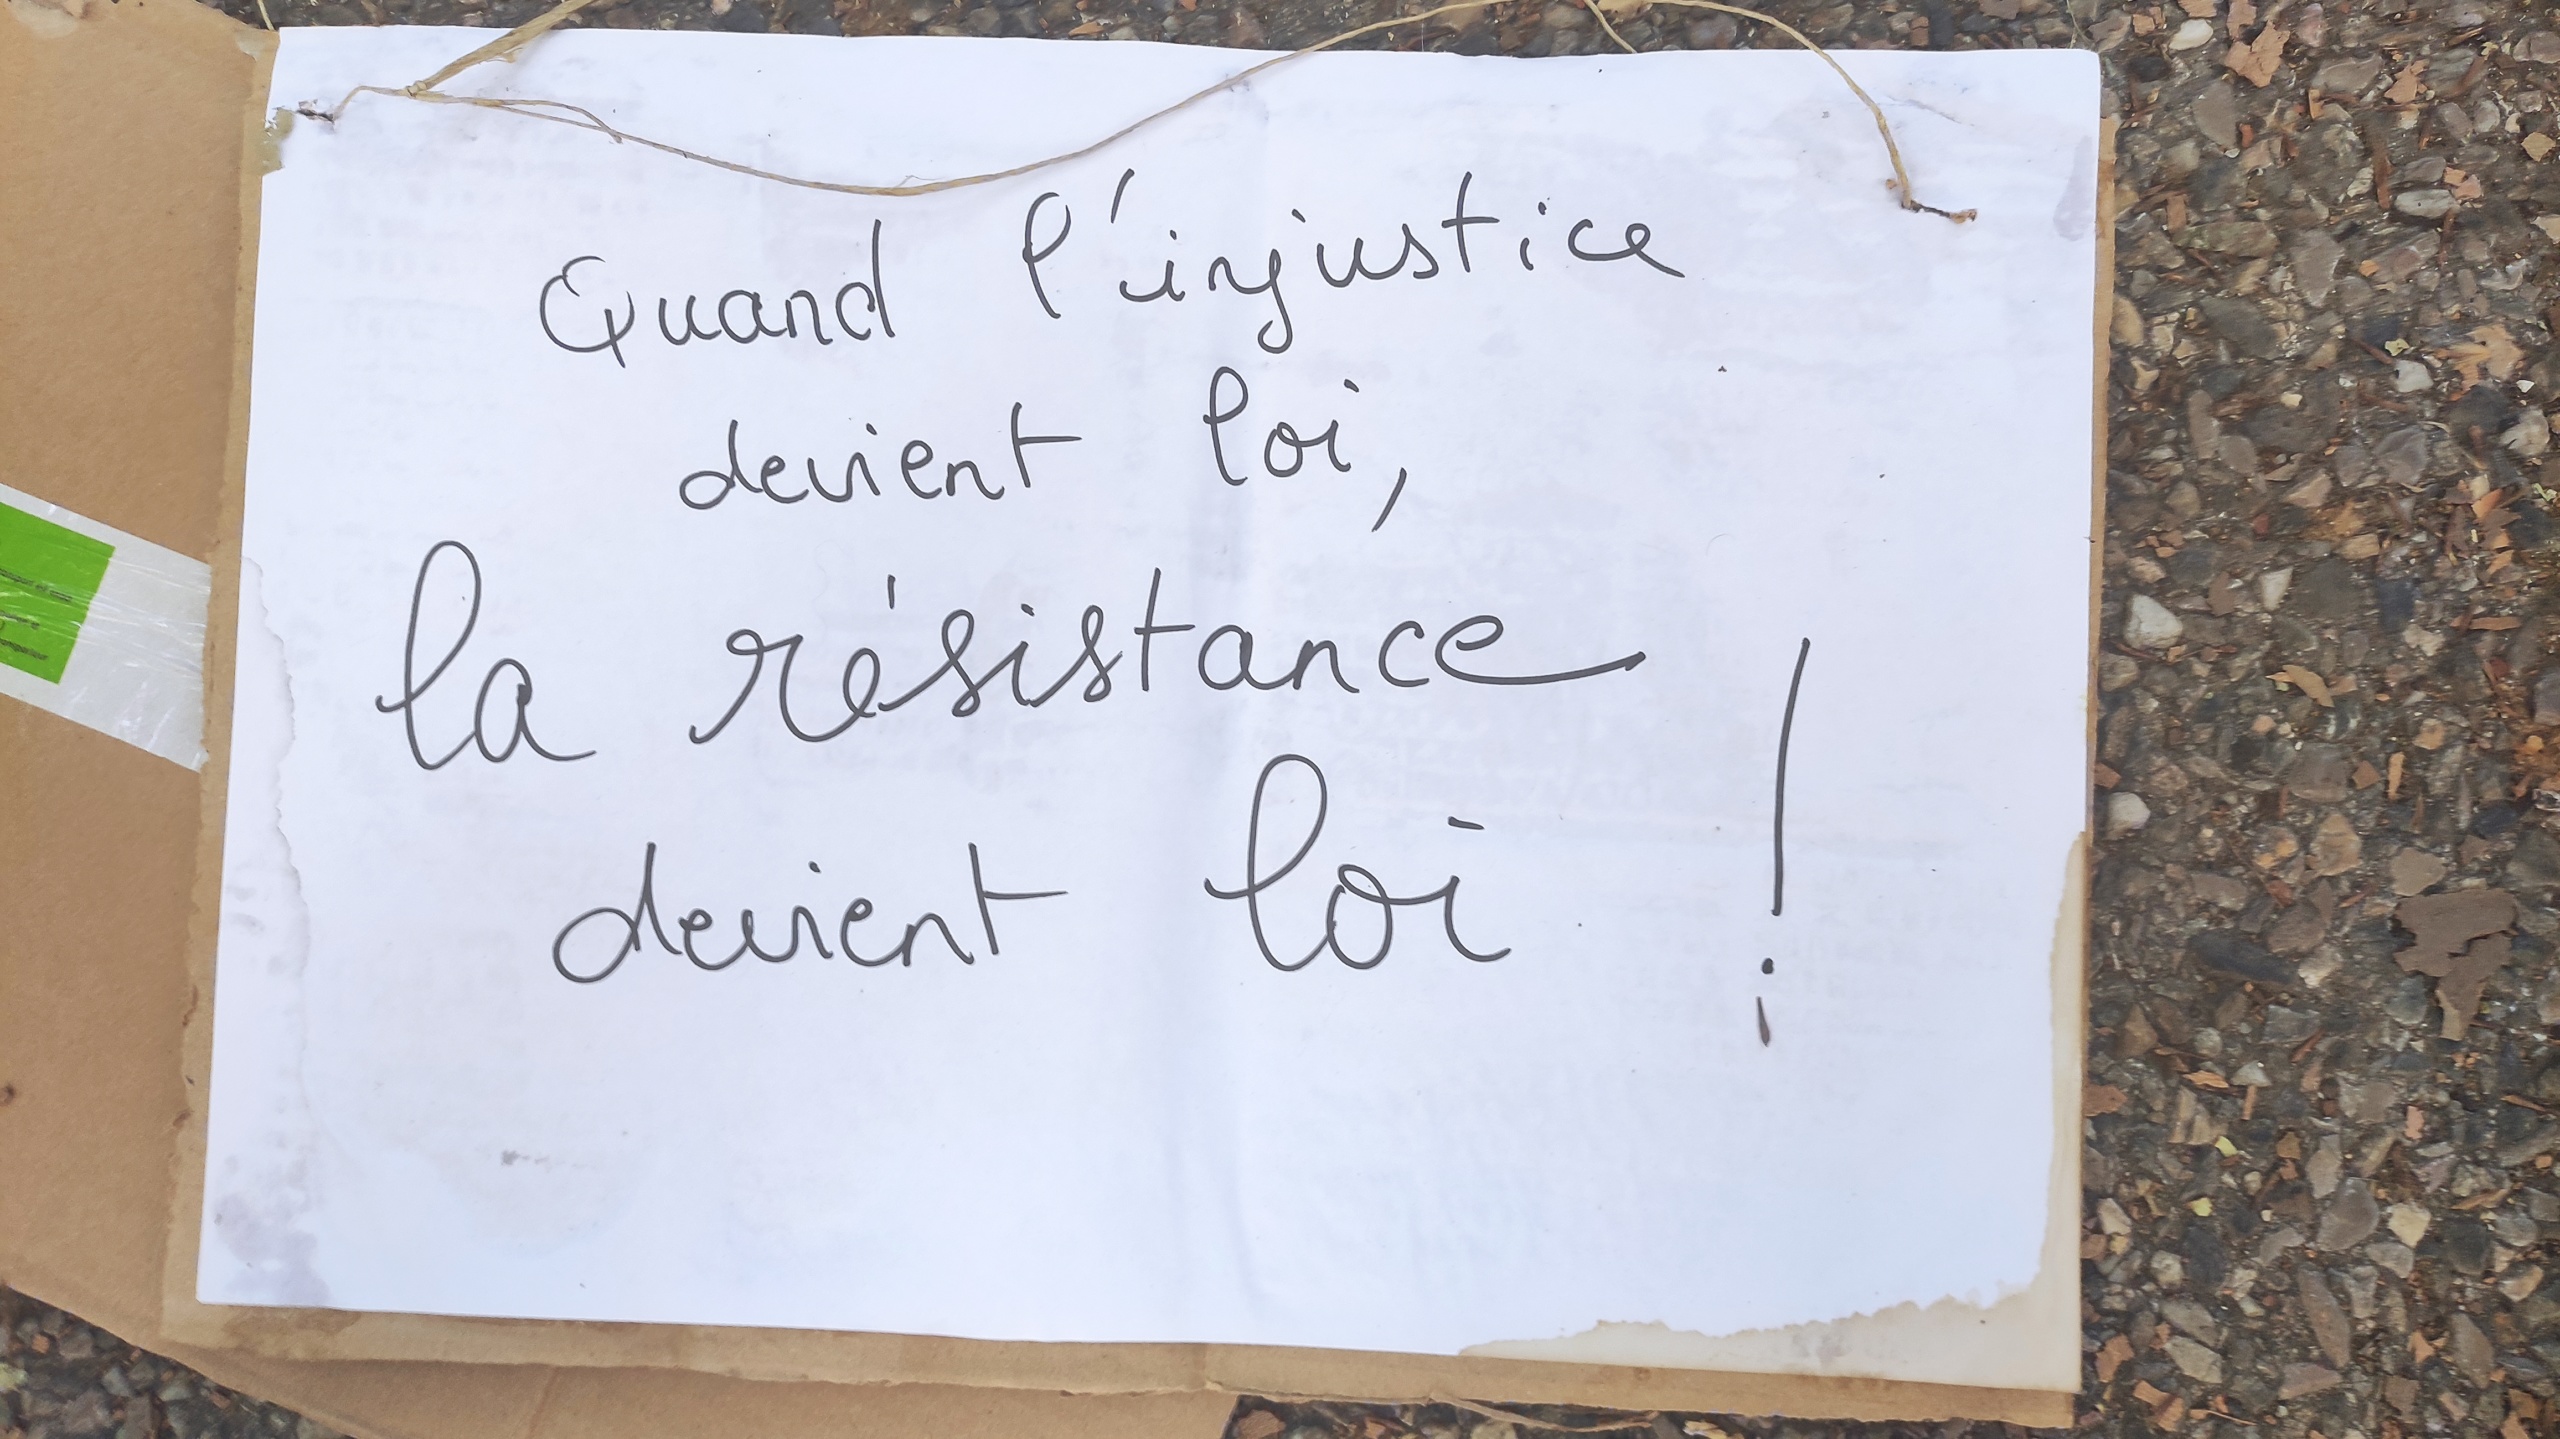 Quand l'injustice
devient loi,
la résistance
devient loi !